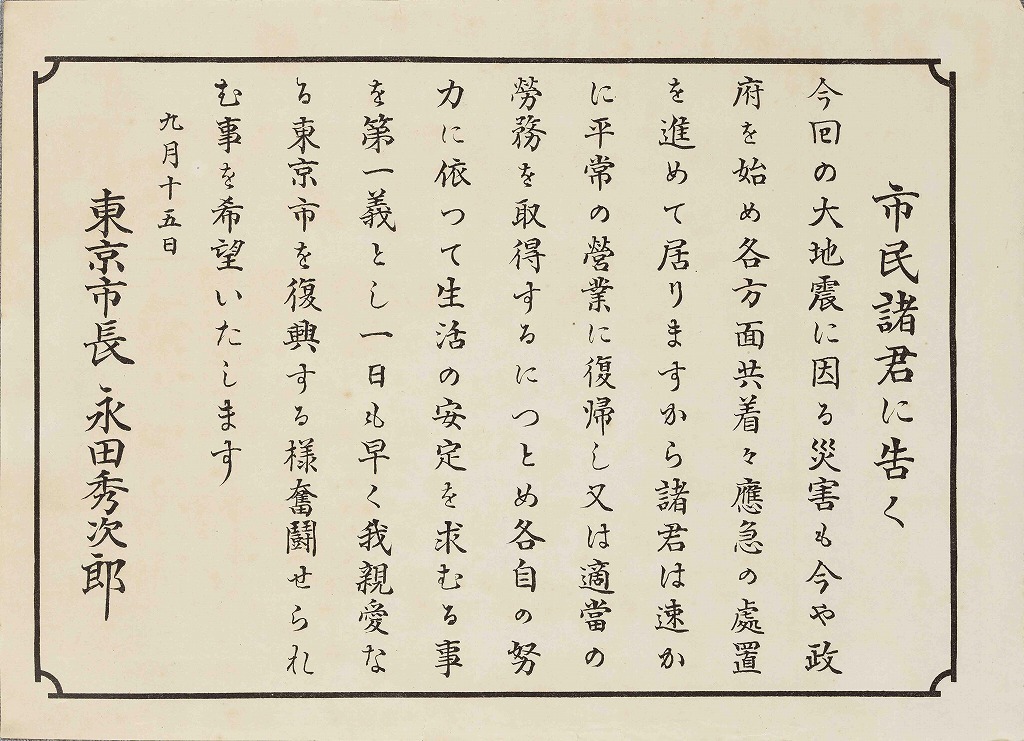 市民諸君に告く
今回の大地震に因る災害も今や政
府を始め各方面共着々應急の處置
を進めて居りますから諸君は速か
に平常の營業に復帰し又は適當の
勞務を取得するにつとめ各自の努
力に依つて生活の安定を求むる事
を第一義とし一日も早く我親愛な
る東京市を復興する様奮鬪せられ
む事を希望いたします
九月十五日
東京市長 永田秀次郎